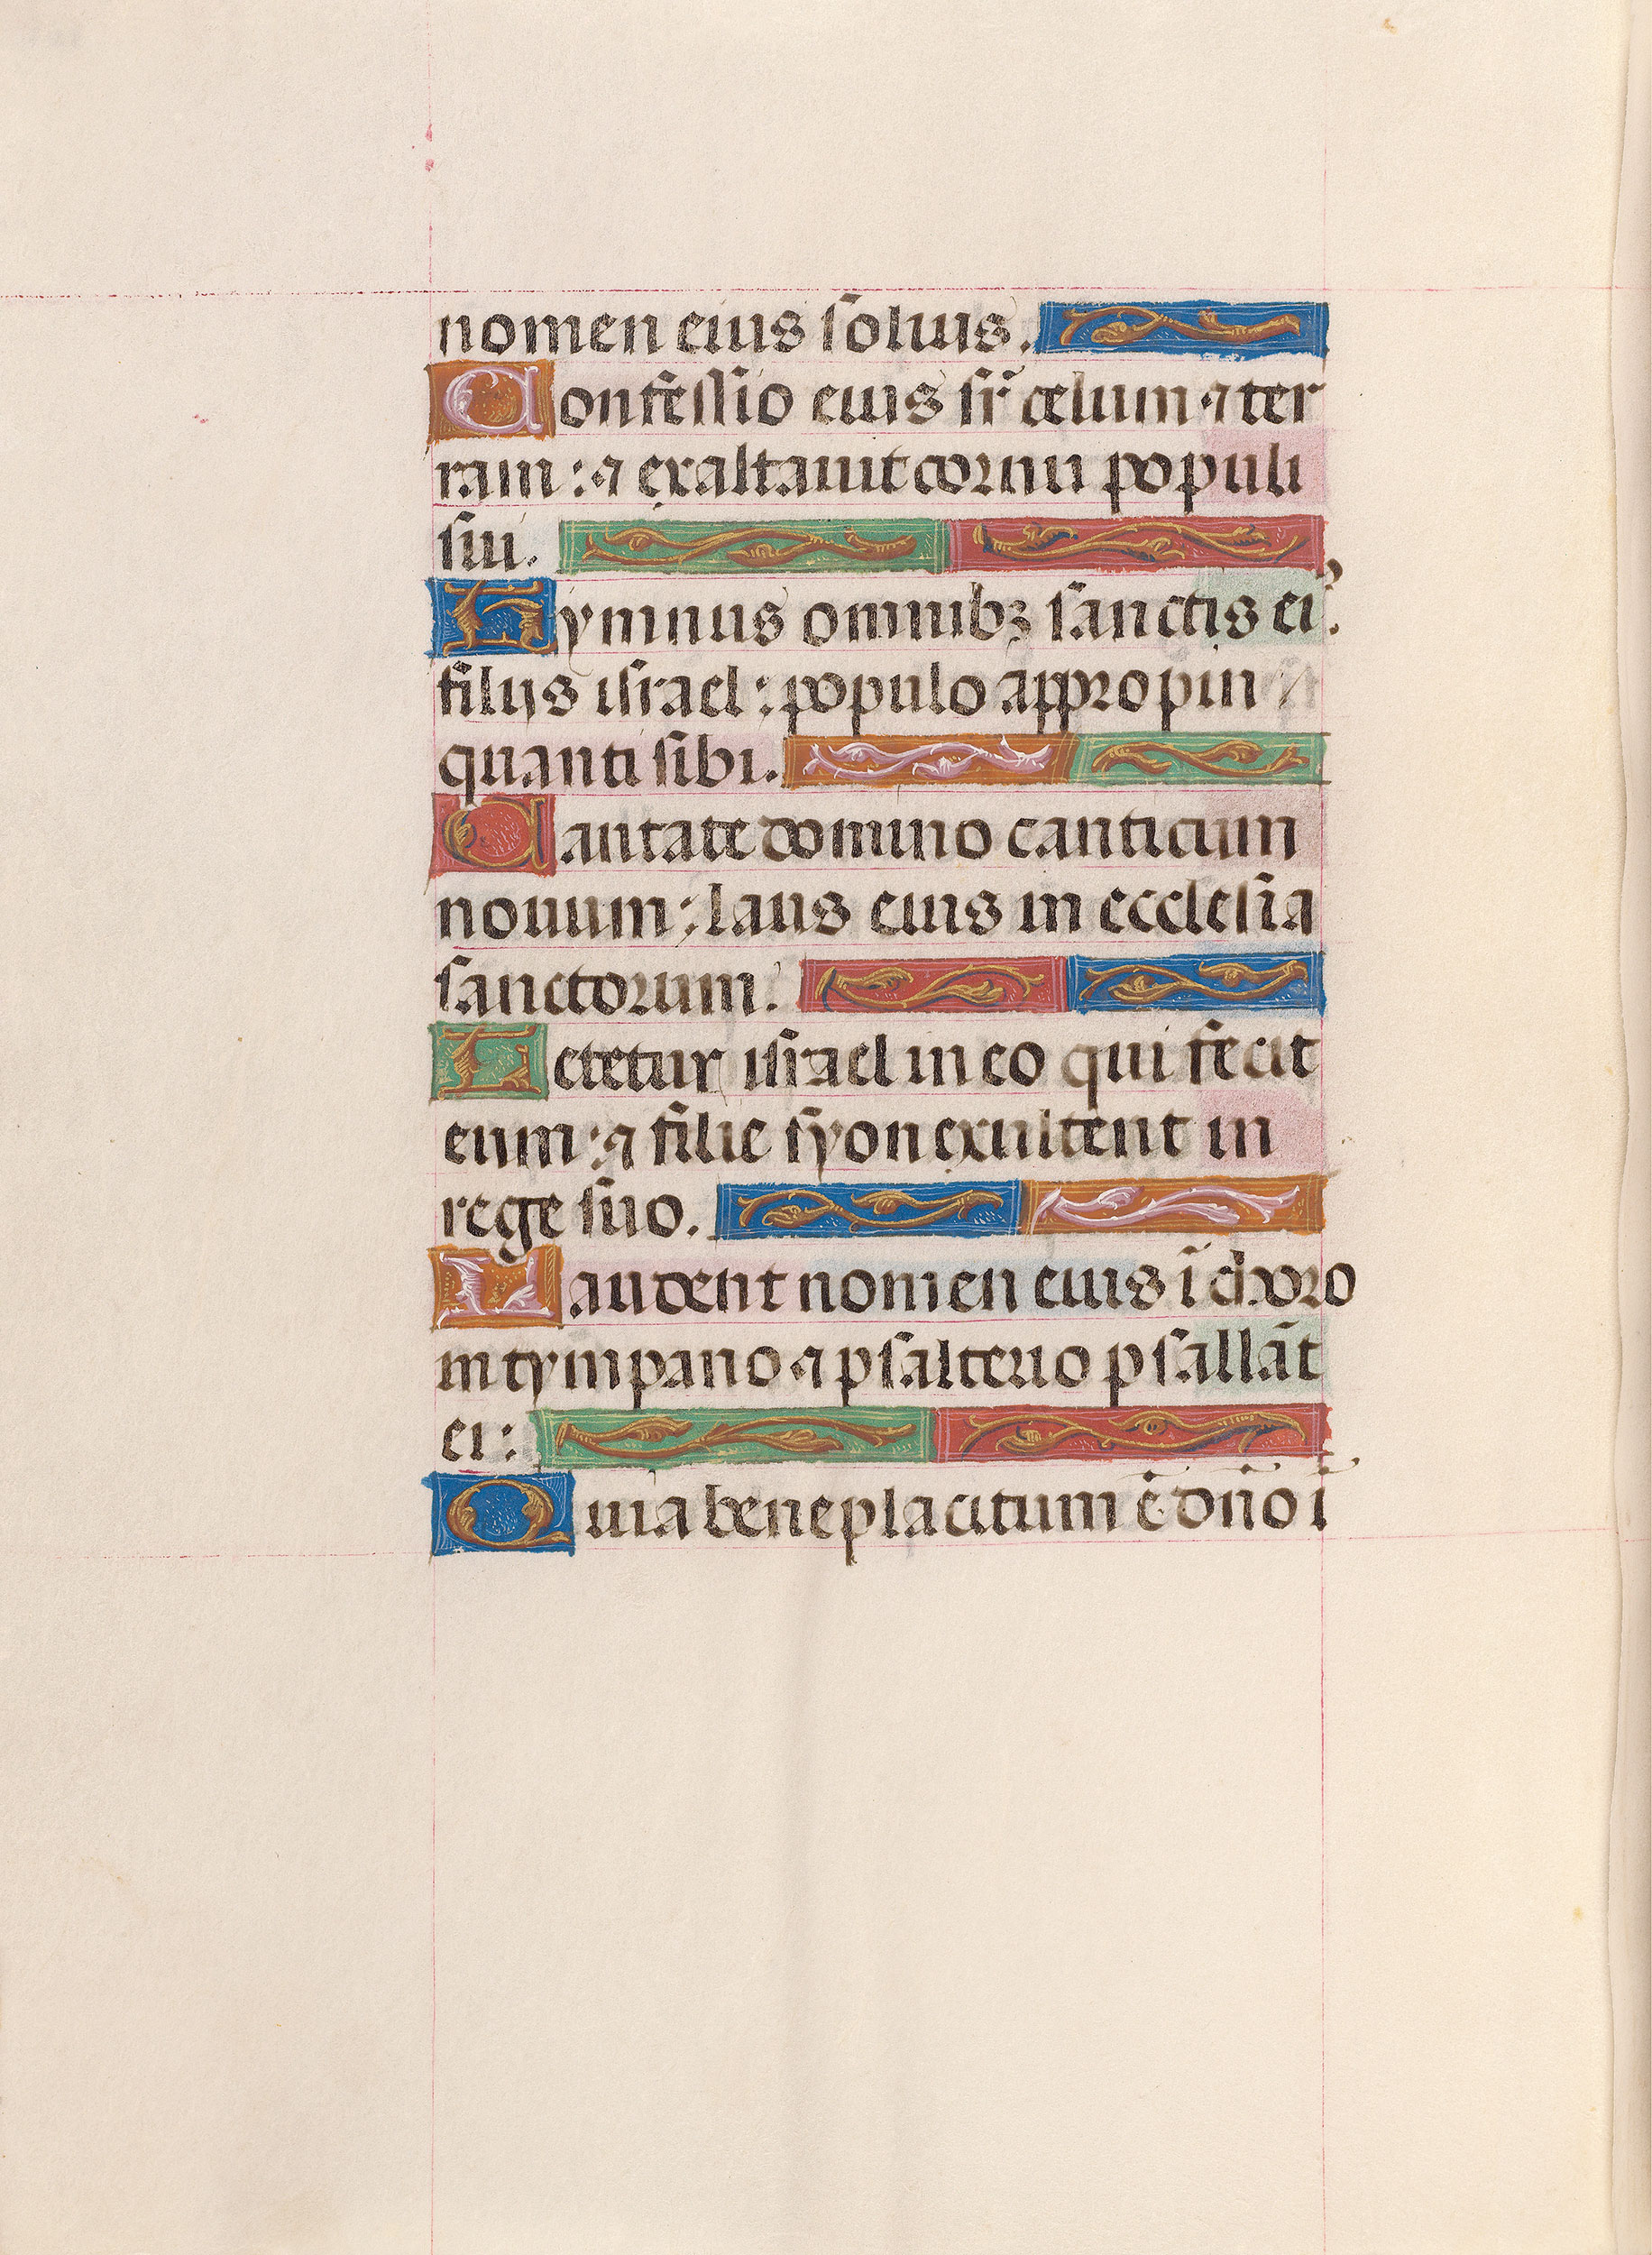 nomen eius solius.
Confessio eius sr̄ celum ⁊ ter
ram: ⁊ exaltauit cornu populi
sui.
Hymnus omnibꝫ sanctis ei⁹.
filijs israel: populo appropin
quanti sibi.
Cantate domino canticum
nouum: laus eius in ecclesia
sanctorum.
Letetur israel in eo qui fecit
eum: ⁊ filie syon exultent in
rege suo.
Laudent nomen eius ī choro
in tympano ⁊ psalterio psallāt
ei:
Quia beneplacitum ē dn̄o ī